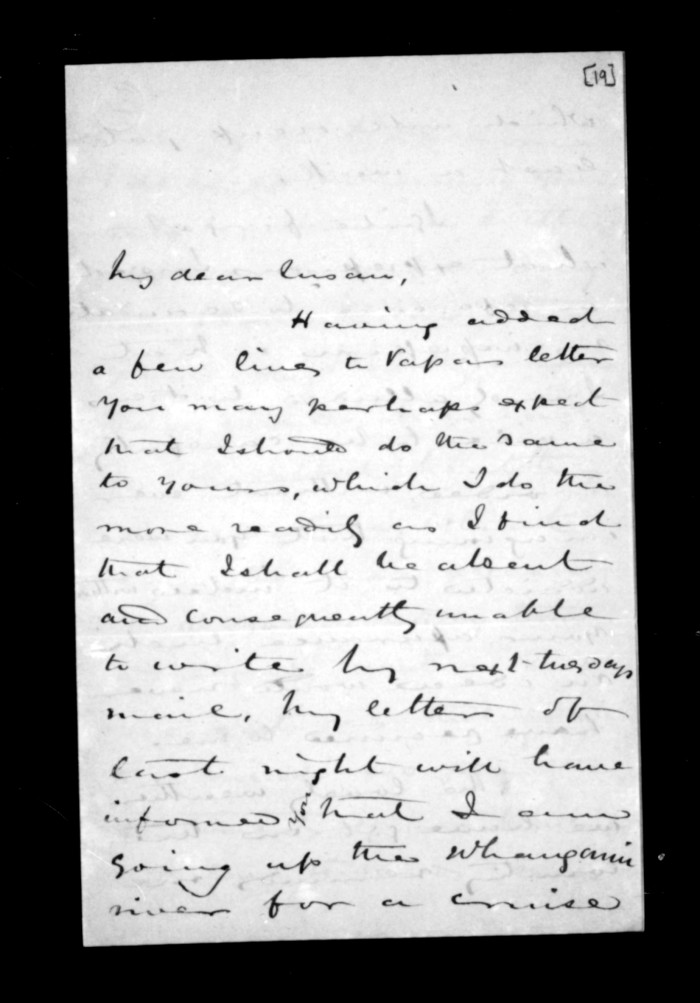 [19]
My dear Susan,
Having added
a few lines to Papas letter
you may perhaps expect
that I should do the same
to yours, which I do the
more readily as I find
that I shall be absent
and consequently unable
to write by next Tuesdays
mail, My letter of
last night will have
informed you that I am
going up the Whanganui
river for a cruise